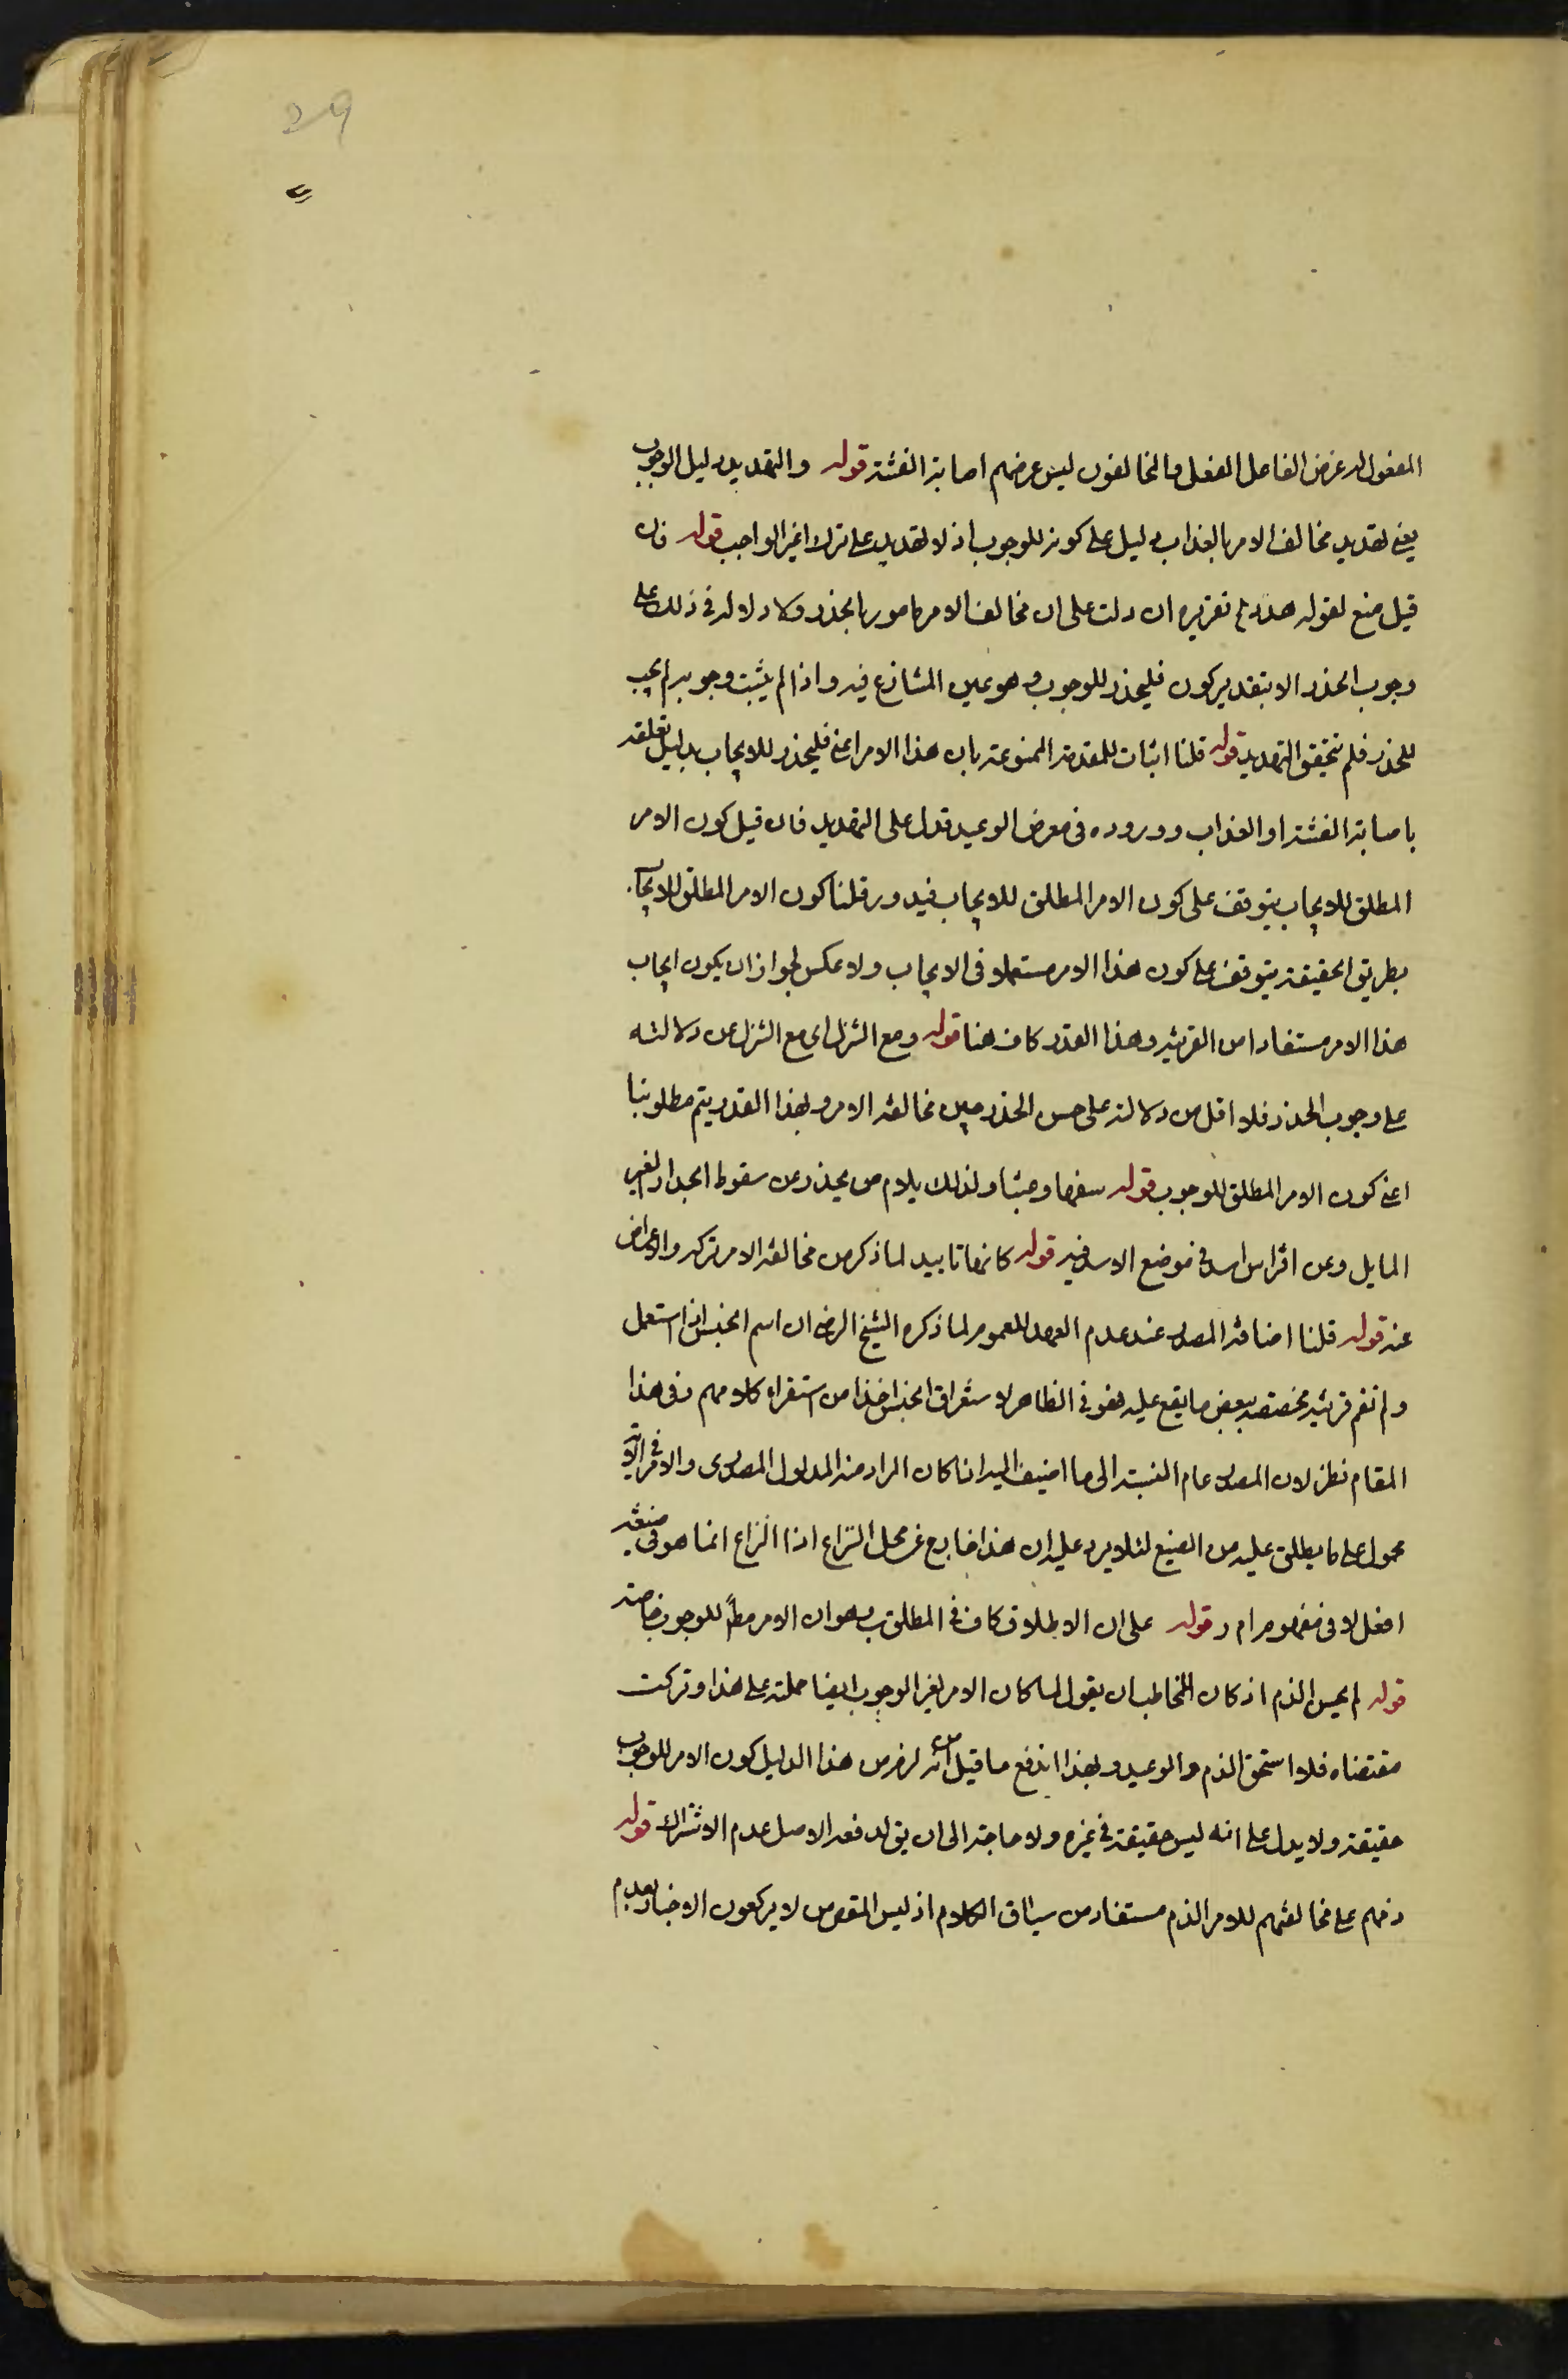 29
المفعول له غرض الفاعل الفعل والمخالفون ليس غرضهم اصابة الفتنة قوله والتهديد دليل الوجوب
يعنى تهديد مخالف الامر بالعذاب دليل على كونه للوجوب اذ لا تهديد على ترك غير الواجب قوله فان
قيل منع لقوله هدد تقريره ان دلت على ان مخالف الامر مامور بالحذر ولا دلالة فى ذلك على
وجوب الحذر الا بتقدير كون فليحذر للوجوب وهو عين المتنازع فيه واذا لم يثبت وجوبه لم يجب
الحذر فلم يتحقق التهديد قوله قلنا اثبات للمقدمة الممنوعة بان هذا الامر اعنى فليحذر للايجاب بدليل تعلقه
باصابة الفتنة او العذاب ووروده فى معرض الوعيد فدل على التهديد فان قيل كون الامر
المطلق للايجاب يتوقف على كون الامر المطلق للايجاب فيدور قلنا كون الامر المطلق للايجاب
بطريق الحقيقة يتوقف على كون هذا الامر مستعملا فى الايجاب ولا عكس لجواز ان يكون ايجاب
هذا الامر مستفادا من القرينة وهذا القدر كاف هنا قوله ومع التنزل اى مع التنزل عن دلالته
على وجوب الحذر فلا اقل من دلالته على حسن الحذر حين مخالفة الامر وبهذا القدر يتم مطلوبنا
اعنى كون الامر المطلق للوجوب قوله سفها وعبثا ولذلك يلام من يحذر عن سقوط الجدار الغير
المايل وعن افتراس اسد فى موضع لا اسد فيه قوله كانها تاييد لما ذكر من مخالفة الامر تركه والاعراض
عنه قوله قلنا اضافة المصدر عند عدم العهد للعموم لما ذكره الشيخ الرضى ان اسم الجنس اذا استعمل
ولم تقم قرينة مخصصة ببعض ما يقع عليه فهو فى الظاهر لاستغراق الجنس اخذا من استقراء كلامهم وفى هذا
المقام نظر لان المصدر عام النسبة الى ما اضيف اليه اذا كان المراد منه المدلول المصدرى والامر فى الآية
محمول على ما يطلق عليه من الصيغ لئلا يرد عليه ان هذا خارج عن محل النزاع اذ النزاع انما هو فى صيغة
افعل لا فى مفهوم ا م ر قوله على ان الاطلاق كاف فى المطلوب وهو ان الامر مط للوجوب خاصة
قوله لم يحسن الذم اذ كان للمخاطب ان يقول لما كان الامر لغير الوجوب ايضا حملته على هذا وتركت
مقتضاه فلا استحق الذم والوعيد وبهذا اندفع ما قيل من انه لزم من هذا الدليل كون الامر للوجوب
حقيقة ولا يدل على انه ليس حقيقة فى غيره ولا حاجة الى ان يق لدفعه الاصل عدم الاشتراك قوله
ذمهم على مخالفتهم للامر الذم مستفاد من سياق الكلام اذ ليس المقص من لا يركعون الاخبار بعدم